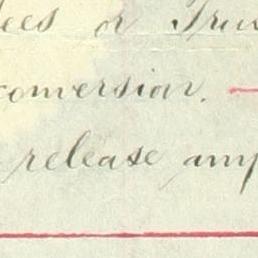 ees or Trus
conversion.
release any